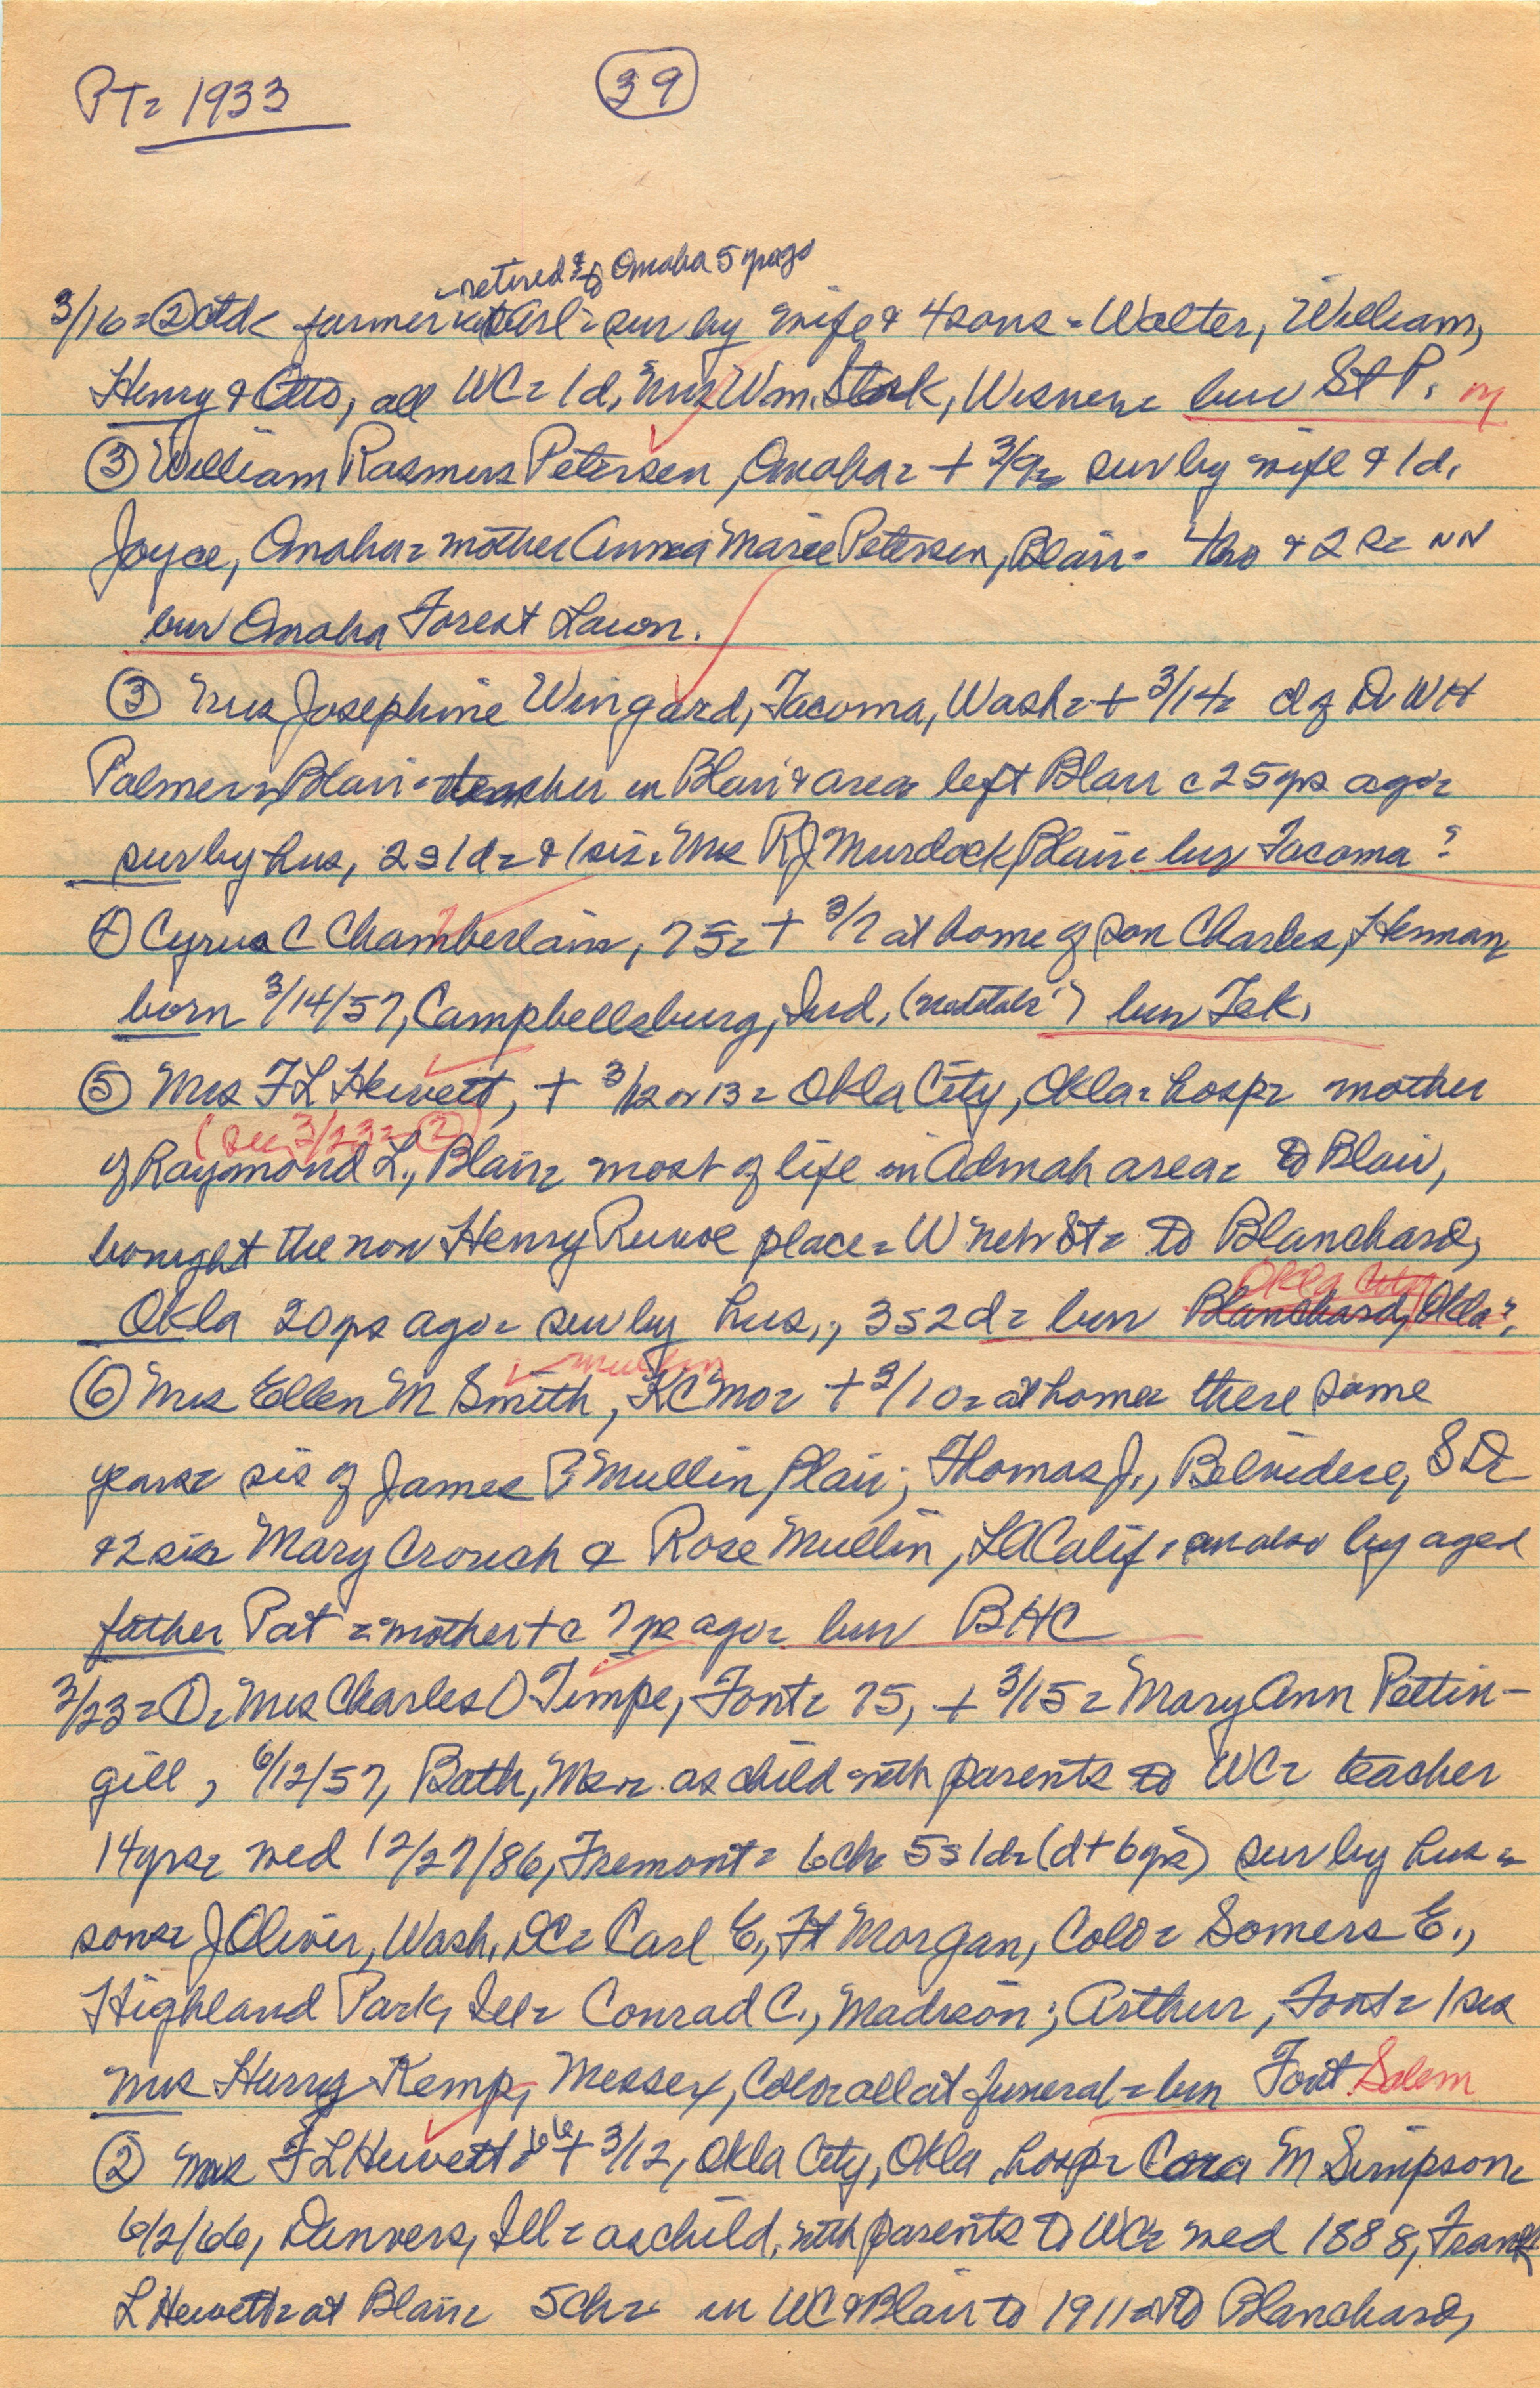 PT= 1933
39
-retired & to Omaha 5 yrs ago
3/16= ② ctd< farmer Arl= sur by wife & 4 sons - Walter, William,
Henry & Otto, all WC= 1d, Mrs Wm. Stork, Wisner= bur St P.
③ William Rasmus Petersen, Omaha= + 3/9= sur by wife & 1d.
Joyce, Omaha= mother Anna Marie Petersen, Blair= 4bro & 2 s= NN
bur Omaha Forest Lawn.
③ Mrs Josephine Wingard, Tacoma, Wash= + 3/14= d of Dr WH
Palmer, Blair= teacher in Blair & area= left Blair c 25 yrs ago=
sur by hus, 2s 1d= & 1 sis. Mrs RJ Murdock, Blair= bur Tacoma?
④ Cyrus C Chamberlain, 75= + 3/7 at home of son Charles, Herman
born 3/14/57, Campbellsburg, Ind, bur Tek.
⑤ Mrs FL Hewett, + 3/12 or 13= Okla City, Okla= hosp= mother
(See 3/23= ②)
of Raymond L., Blair= most of life in Admah area= to Blair,
bought the now Henry place= W Neb St= to Blanchard,
Okla City
Okla 20 yrs ago= sur by hus,, 3s 2d= bur Blanchard, Okla?,
- Mullin
⑥ Mrs Ellen M Smith, KC Mo= + 3/10= at home= there some
years= sis of James P. Mullin, Blair; Thomas J., Belvidere, SD=
& 2 sis Mary Crouch & Rose Mullin, LA Calif= also by aged
father Pat = mother + c 7 yrs ago= bur BHC
3/23= ①= Mrs Charles O Timpe, Font= 75, + 3/15= Mary Ann Pettin-
gill, 6/12/57, Bath, Me= as child with parents to WC= teacher
14 yrs= wed 12/27/86, Fremont= 6ch= 5s 1d= (d + 6 yrs) sur by hus=
sons= J Oliver, Wash, DC= Carl E., Ft Morgan, Colo= Somers E.,
Highland Park, Ill= Conrad C., Madison; Arthur, Font= 1 sis
Mrs Harry Kemp, Messex, Colo= all at funeral= bur Font Salem
② Mrs FL Hewett= 66 + 3/12, Okla City, Okla, hosp= Cora M Simpson=
6/2/66, Danvers, Ill= as child, with parents to WC= wed 1888, Frank
L Hewett= at Blair= 5ch= in WC & Blair to 1911= to Blanchard,